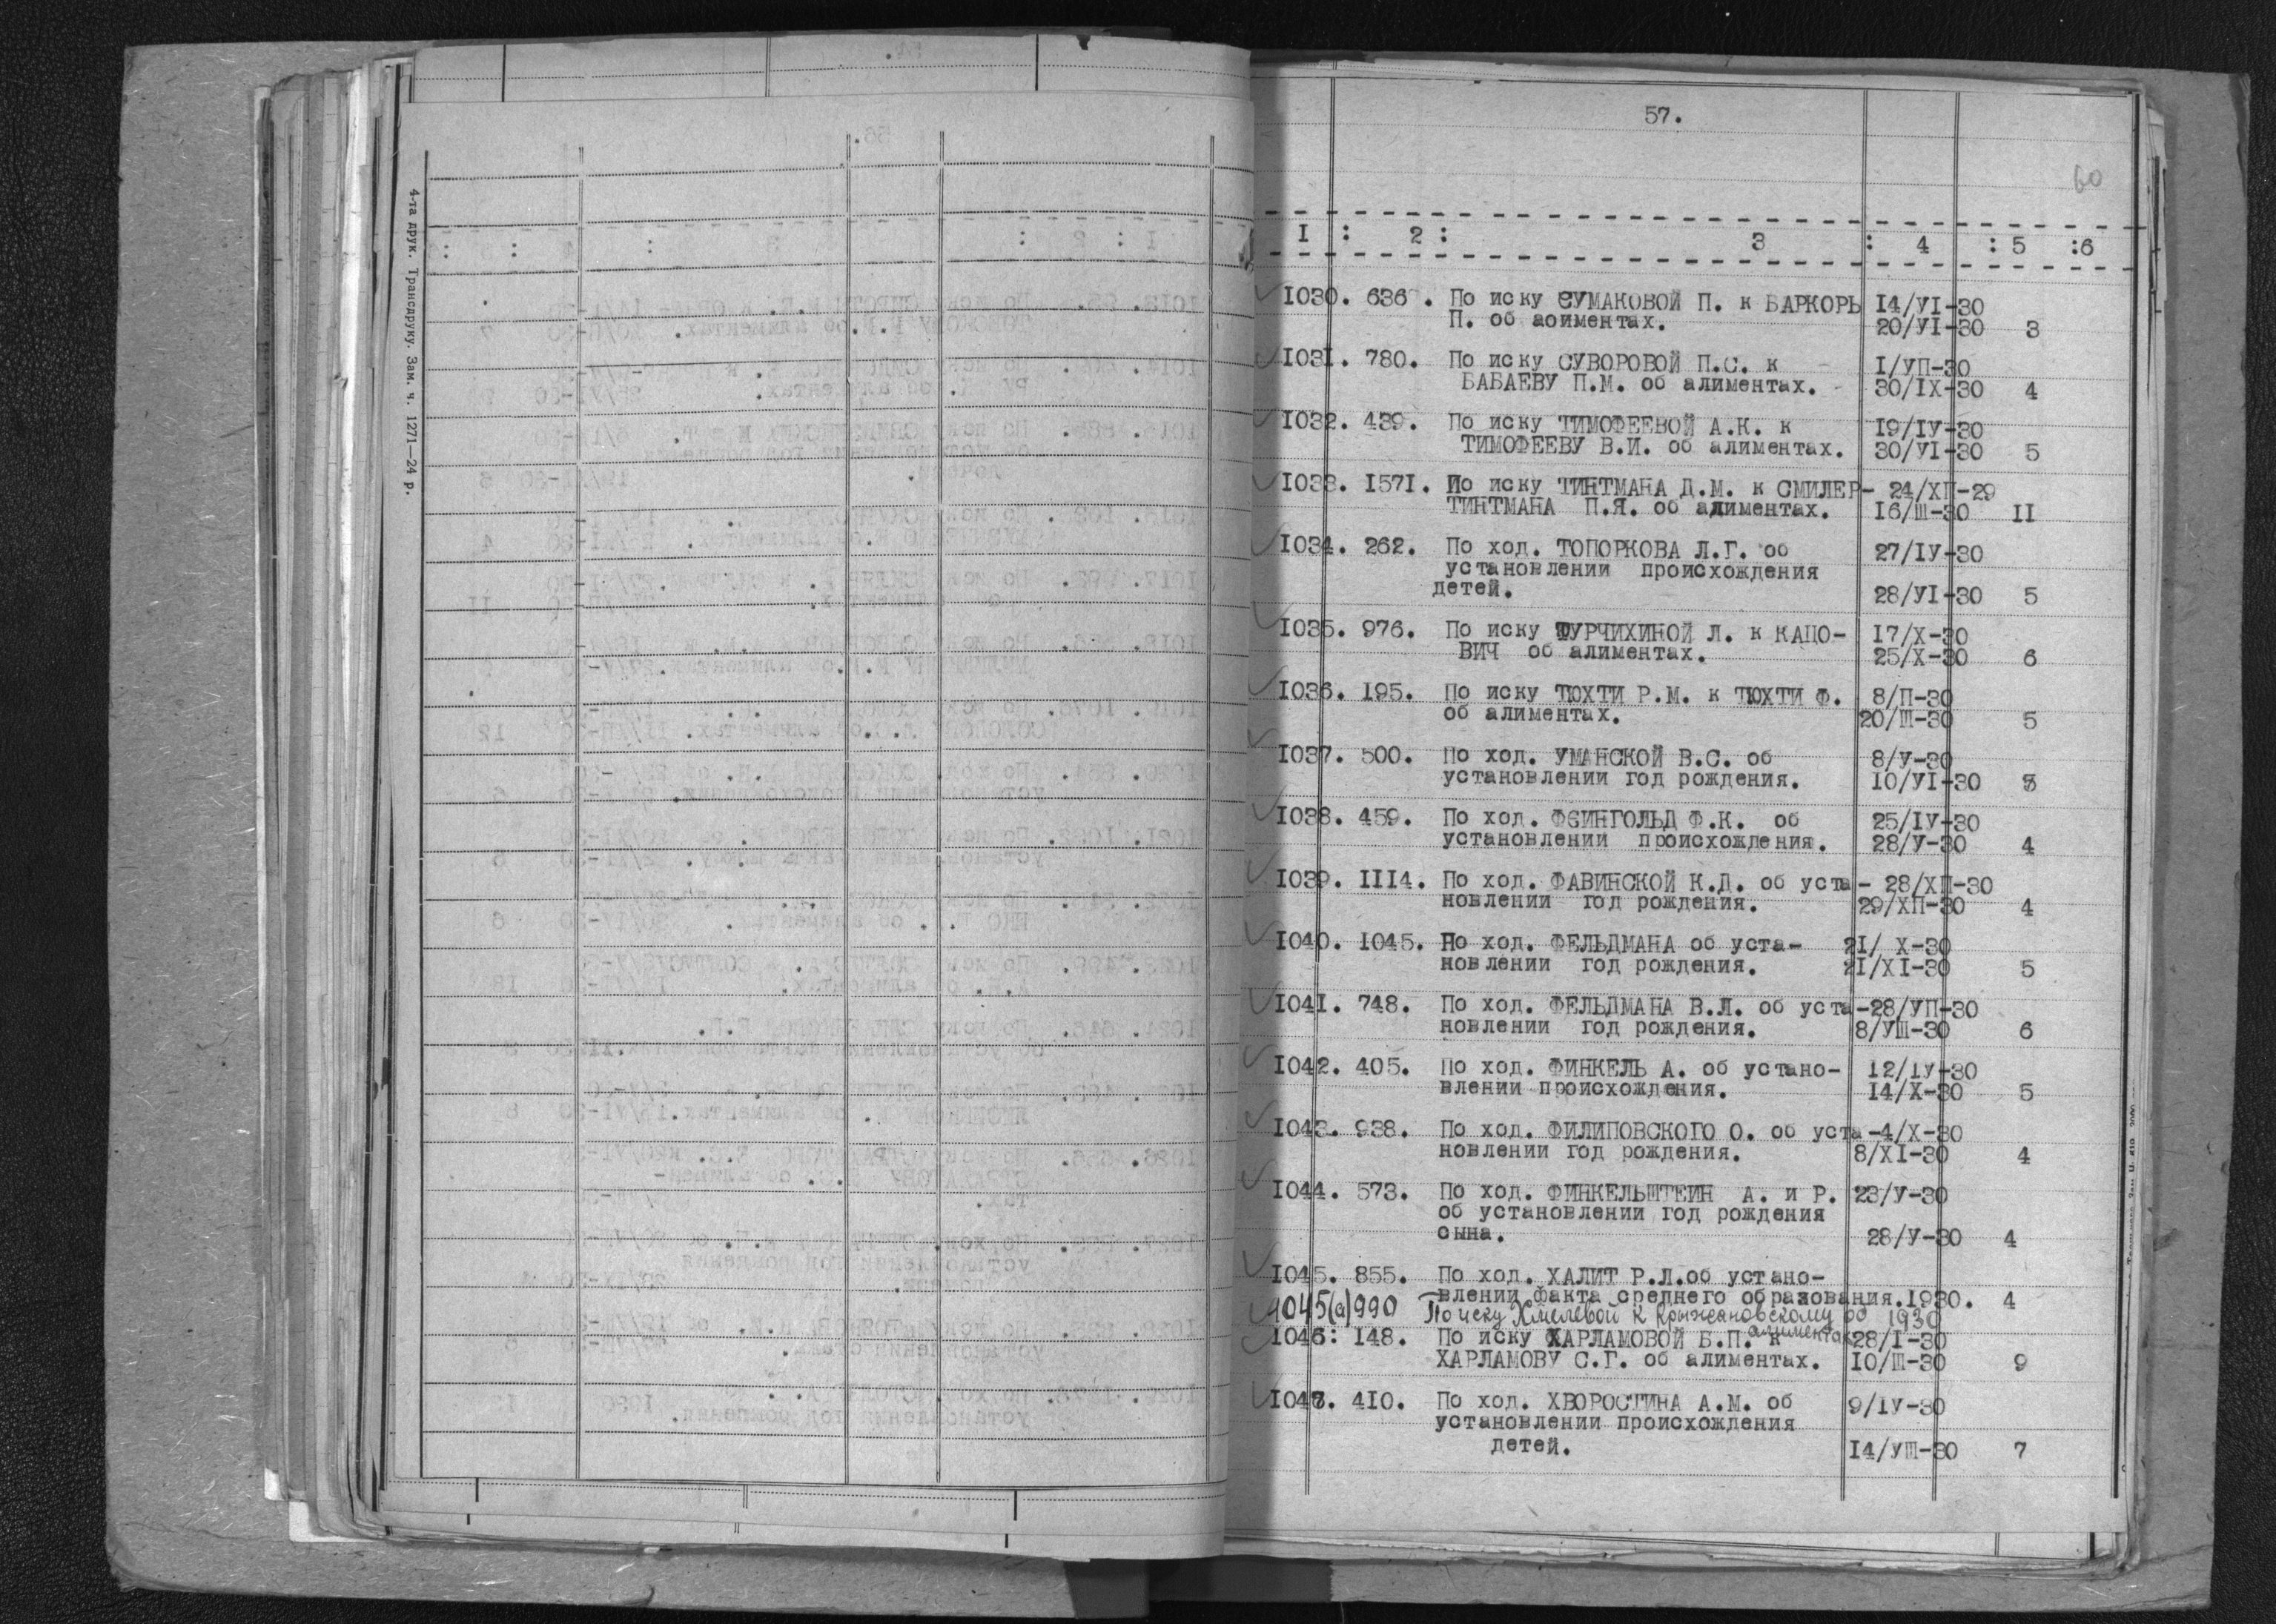 4-та друк. Трансдруку. Зам. ч. 1271—24 р.
57.
60
I : 2 : 3 : 4 : 5 :6
I030. 636. По иску СУМАКОВОЙ П. к БАРКОРЬ I4/УI-30
П. об аоиментах. 20/УI-30 3
I03I. 780. По иску СУВОРОВОЙ П.С. к I/УП-30
БАБАЕВУ П.М. об алиментах. 30/IХ-30 4
I032. 439. По иску ТИМОФЕЕВОЙ А.К. к I9/IУ-30
ТИМОФЕЕВУ В.И. об алиментах. 30/УI-30 5
I033. I57I. По иску ТИНТМАНА Д.М. к СМИЛЕР- 24/ХП-29
ТИНТМАНА П.Я. об алиментах. I6/Ш-30 II
I034. 262. По ход. ТОПОРКОВА Л.Г. об 27/IУ-30
установлении происхождения
детей. 28/УI-30 5
I035. 976. По иску ТУРЧИХИНОЙ Л. к КАЦО- I7/Х-30
ВИЧ об алиментах. 25/Х-30 6
I036. I95. По иску ТЮХТИ Р.М. к ТЮХТИ Ф. 8/П-30
об алиментах. 20/Ш-30 5
I037. 500. По ход. УМАНСКОЙ В.С. об 8/У-30
установлении год рождения. I0/УI-30
I038. 459. По ход. ФЕИНГОЛЬД Ф.К. об 25/IУ-30
установлении происхождения. 28/У-30 4
I039. III4. По ход. ФАВИНСКОЙ К.Д. об уста- 28/ХП-30
новлении год рождения. 29/ХП-30 4
I040. I045. По ход. ФЕЛЬДМАНА об уста- 2I/ Х-30
новлении год рождения. 2I/ХI-30 5
I04I. 748. По ход. ФЕЛЬДМАНА В.Л. об уста-28/УП-30
новлении год рождения. 8/УШ-30 6
I042. 405. По ход. ФИНКЕЛЬ А. об устано- I2/IУ-30
влении происхождения. I4/Х-30 5
I043. 938. По ход. ФИЛИПОВСКОГО О. об уста-4/Х-30
новлении год рождения. 8/ХI-30 4
I044. 573. По ход. ФИНКЕЛЬШТЕИН А. и Р. 23/У-30
об установлении год рождения
сына. 28/У-30 4
I045. 855. По ход. ХАЛИТ Р.Л.об устано-
влении факта среднего образования.I930. 4
1045(а) 990 По иску Хмелевой к Крыжановскому об 1930
алиментах
I046: I48. По иску ХАРЛАМОВОЙ Б.П. к 28/I-30
ХАРЛАМОВУ С.Г. об алиментах. I0/Ш-30 9
I047. 4I0. По ход. ХВОРОСТИНА А.М. об 9/IУ-30
установлении происхождения
детей. I4/УШ-30 7